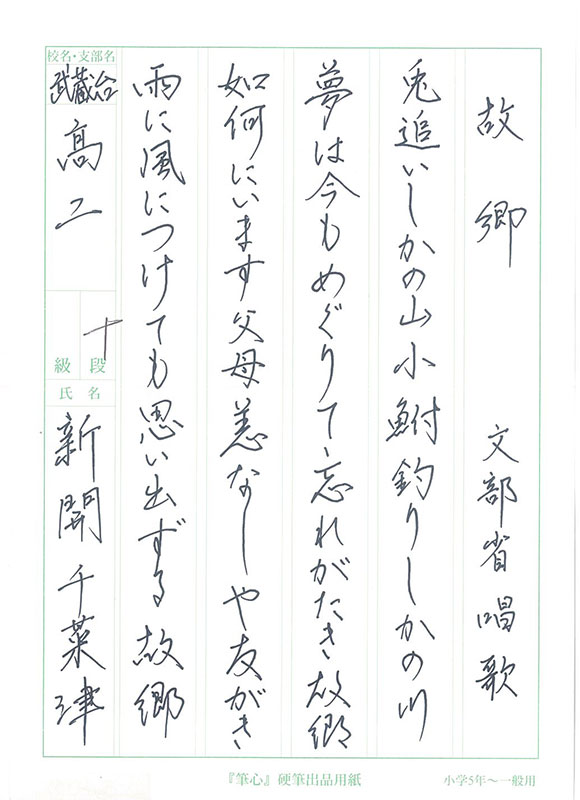 故郷 文部省唱歌
兎追いしかの山小鮒釣りしかの川
夢は今もめぐりて、忘れがたき故郷
如何にいます父母恙なしや友がき
雨に風につけても思い出ずる故郷
校名・支部名
武蔵台
高二
十
段
級
氏名
新開千菜津
『筆心』硬筆出品用紙
小学5年～一般用